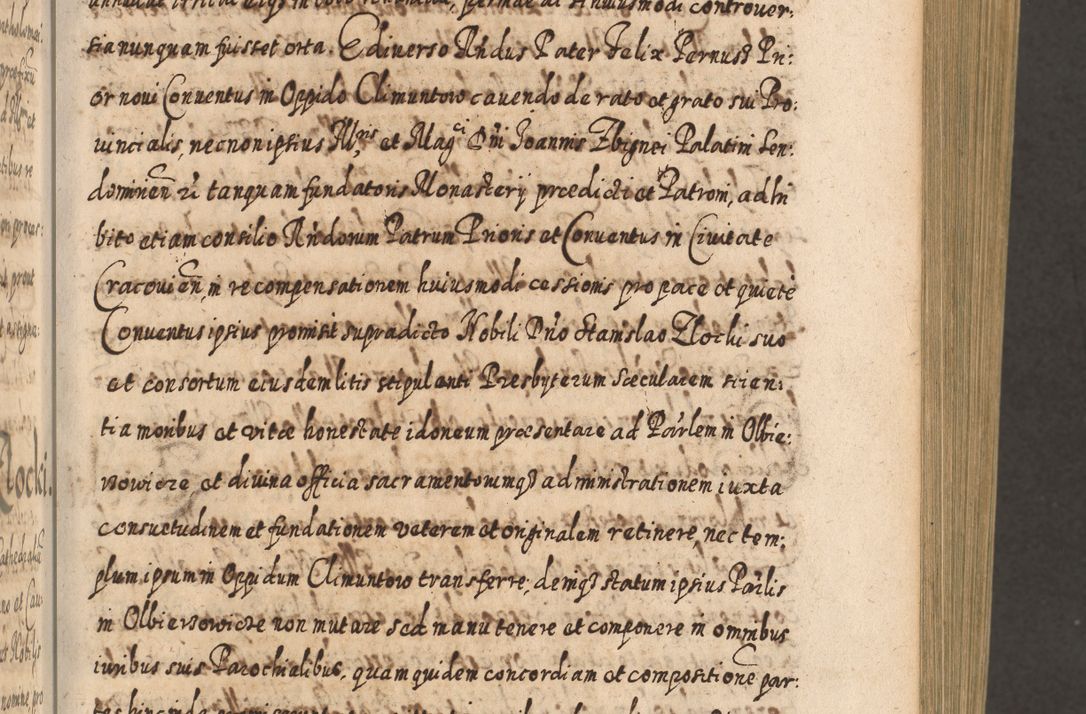 sia nunquam fuisset orta. E diverso Rndus Pater Felix Pernus Pri:
or novi Conventus in Oppido Climuntow cavendo de rato et grato sui Pro:
vincialis, necnon ipsius Illris et Magci Dni Joannis Zbignei Palatini Sen:
domirien tanquam fundatoris Monasterij prædicti et Patroni, adhi
bito etiam consilio Rndorum Patrum Prioris et Conventus in Civitate
Cracovien, in recompensationem huiusmodi cessionis pro pace et quiete
Conventus ipsius promisit supradicto Nobili Dno Stanislao Zlocki suo
et consortum eiusdem litis stipulanti Presbyterum Sæcularem scien:
tia moribus et vitæ honestate idoneum præsentare ad Parlem in Olbie:
rzowicze et divina officia sacramentorumq administrationem iuxta
consuetudinem et fundationem veterem et originalem retinere, nec tem:
plum ipsum in Oppidum Climuntow transferre, deniq statum ipsius Parlis
in Olbierzowicze non mutare sed manu tenere et componere in omnibus
iuribus suis Parochialibus, quam quidem concordiam et compositione par: